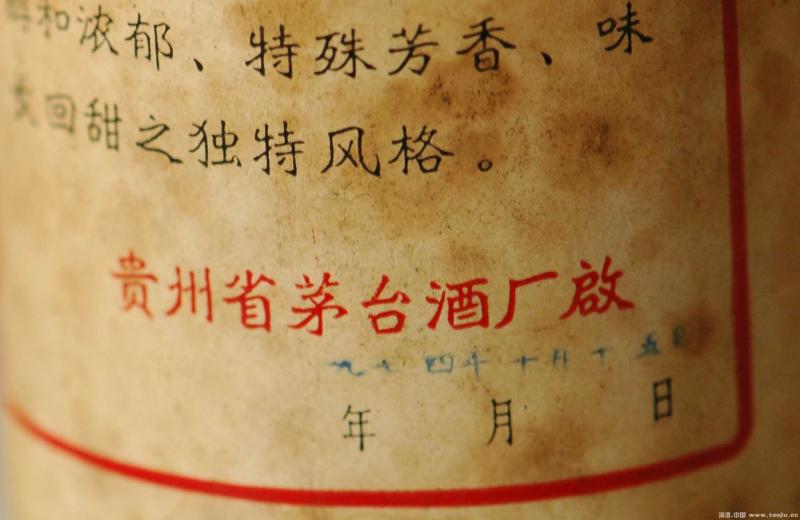 和浓郁、特殊芳香、味
回甜之独特风格。
贵州省茅台酒厂啟
一九七四年十月十五日
年 月 日
www.taojiu.cc